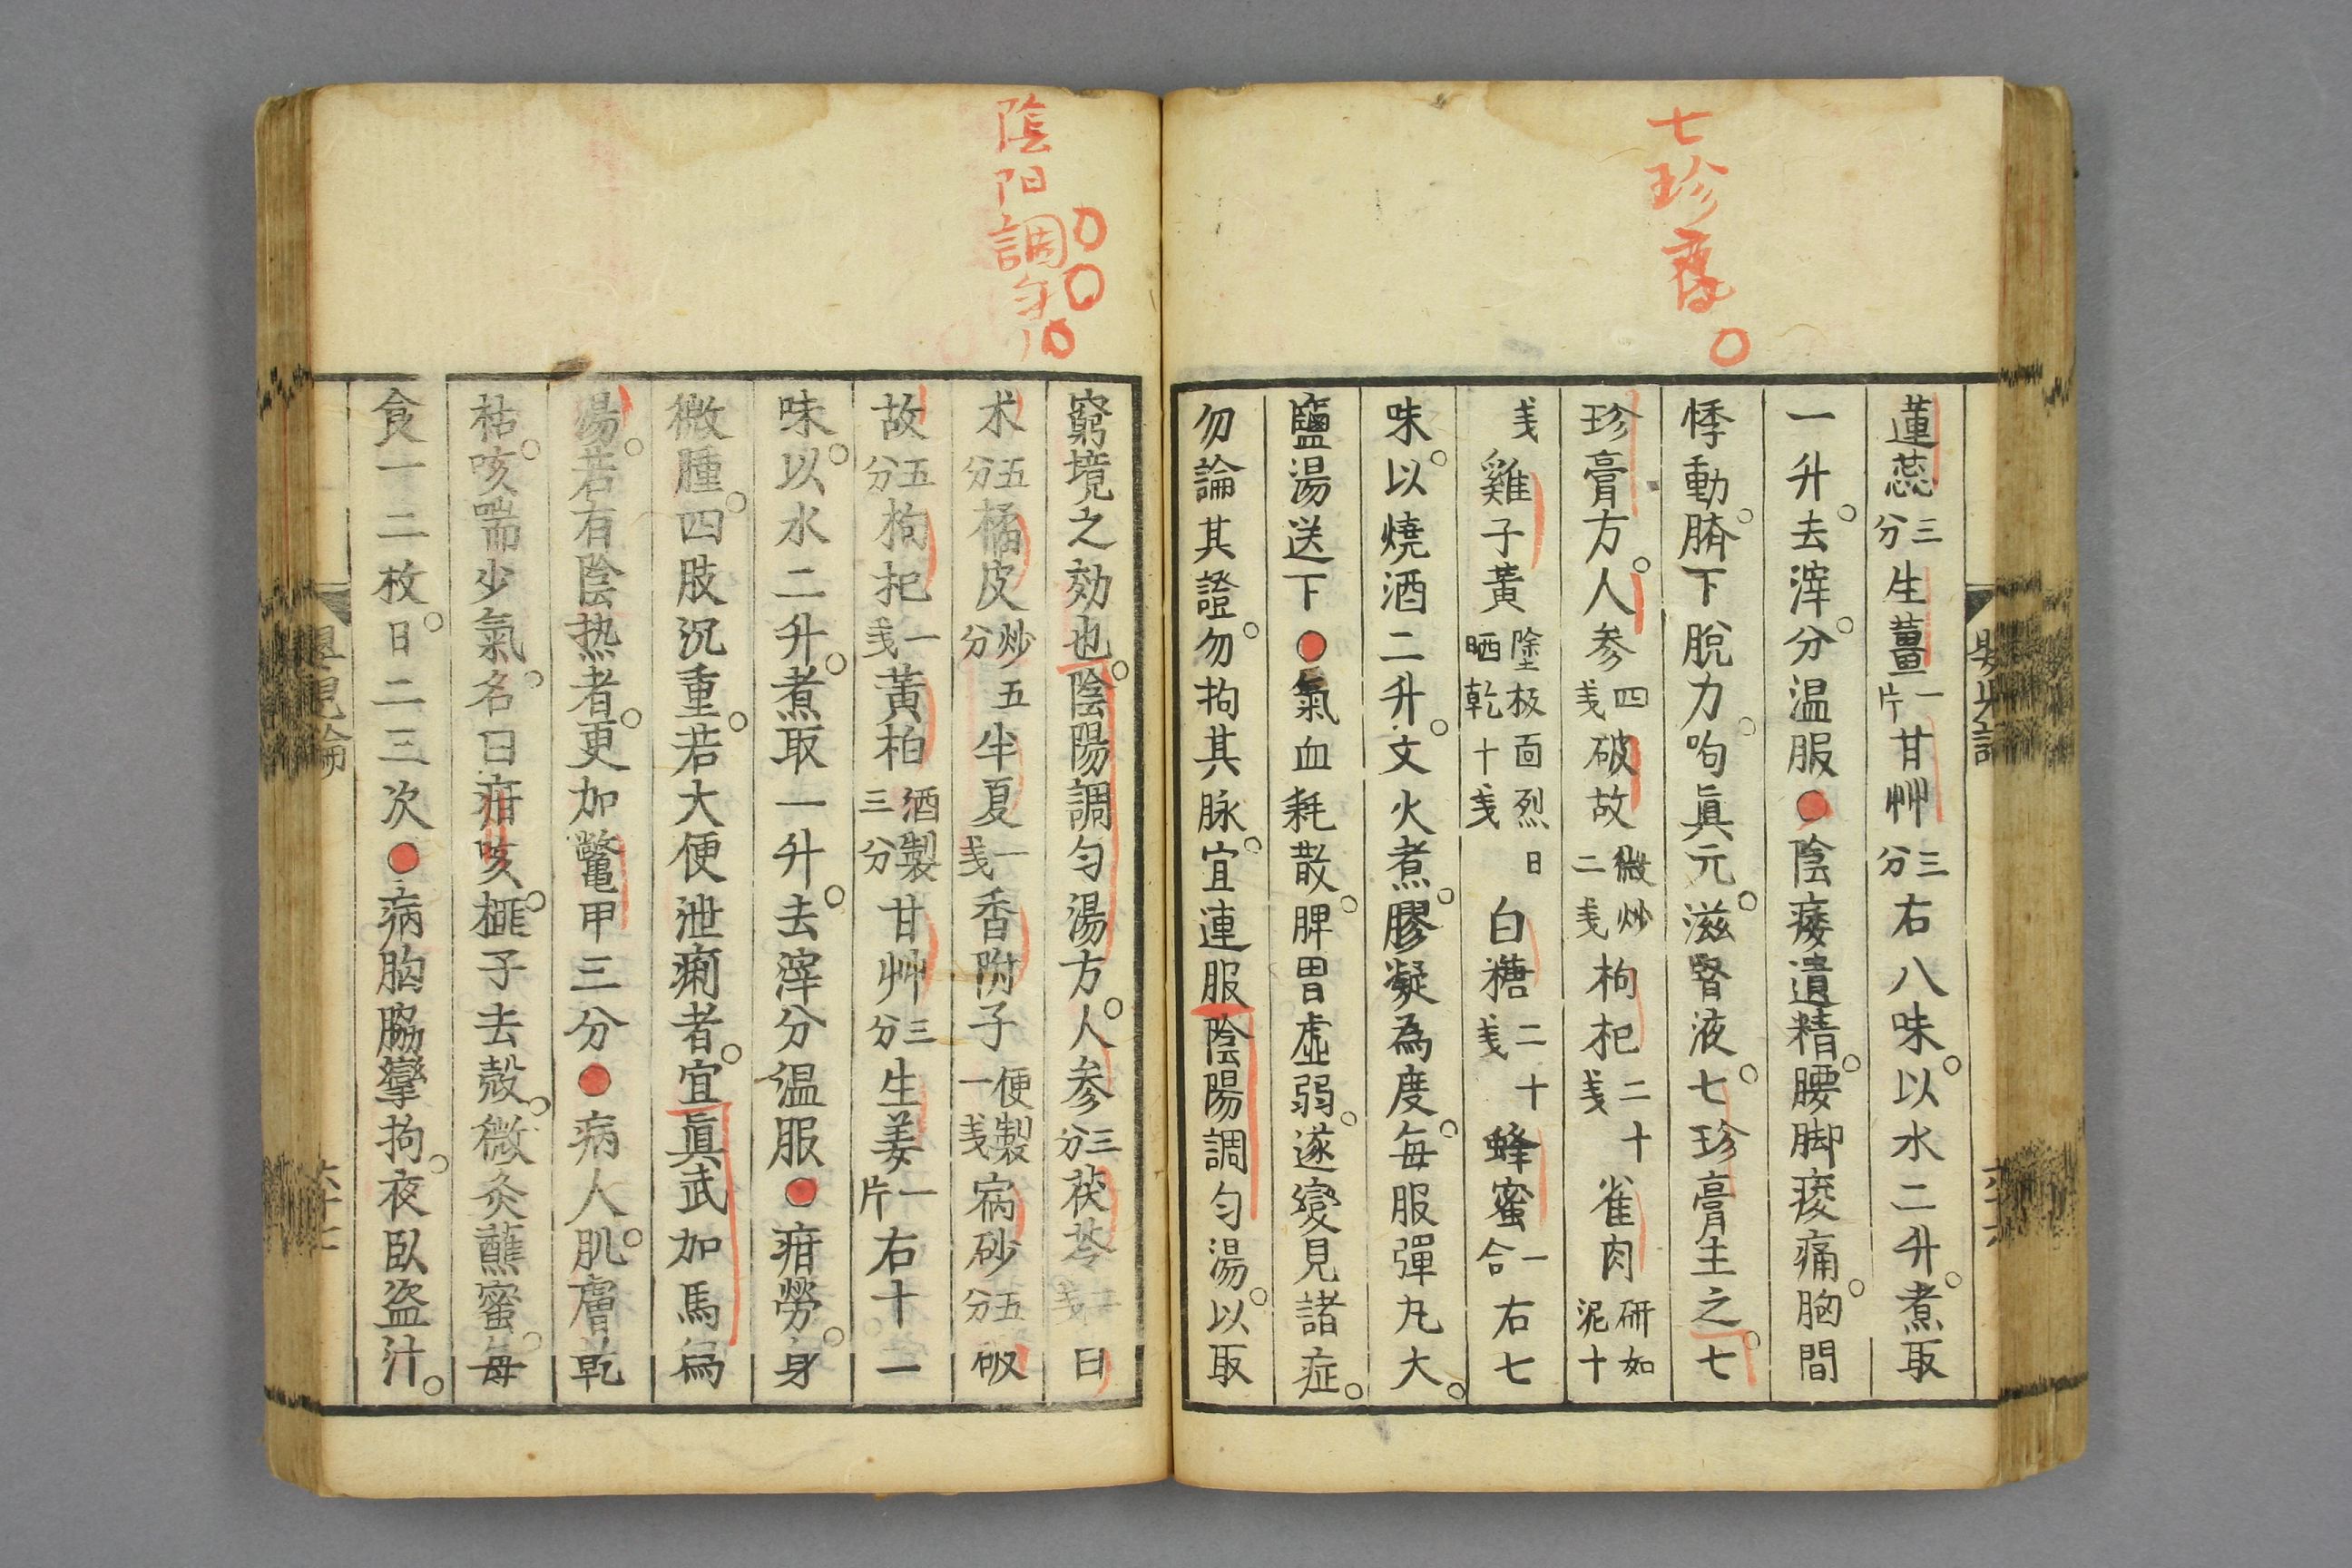 七珍膏
蓮蕊三分生薑一片甘艸三分右八味。以水二升。煮取
一升。去滓。分温服●陰痿遺精。腰脚痠痛。胸間
悸動。臍下脫力。呴眞元。滋腎液。七珍膏主之。七
珍膏方。人参四戔破故微炒二戔枸杞二十戔雀肉研如泥十
戔雞子黃塗板面烈日晒乾十戔白糖二十戔蜂蜜一合右七
味。以燒酒二升。文火煮。膠凝為度。每服彈丸大。
鹽湯送下●氣血耗散。脾胃虛弱。遂變見諸症。
勿論其證。勿拘其脉。宜連服陰陽調勻湯。以取
陰阳調匀
窮境之効也。陰陽調勻湯方。人参三分茯苓二戔白
术五分橘皮炒五分半夏一戔香附子便製一戔宿砂五分破
故五分枸杞一戔黃柏酒製三分甘艸三分生姜一片右十一
味。以水二升。煮取一升。去滓分温服●疳勞。身
微腫。四肢沉重。若大便泄痢者。宜眞武加馬烏
湯。若有陰热者。更加鼈甲三分●病人肌。膚乾
枯。咳喘少氣。名曰疳咳。榧子去殼。微灸蘸蜜。每
食一二枚。日二三次●病胸脇攣拘。夜臥盜汁。